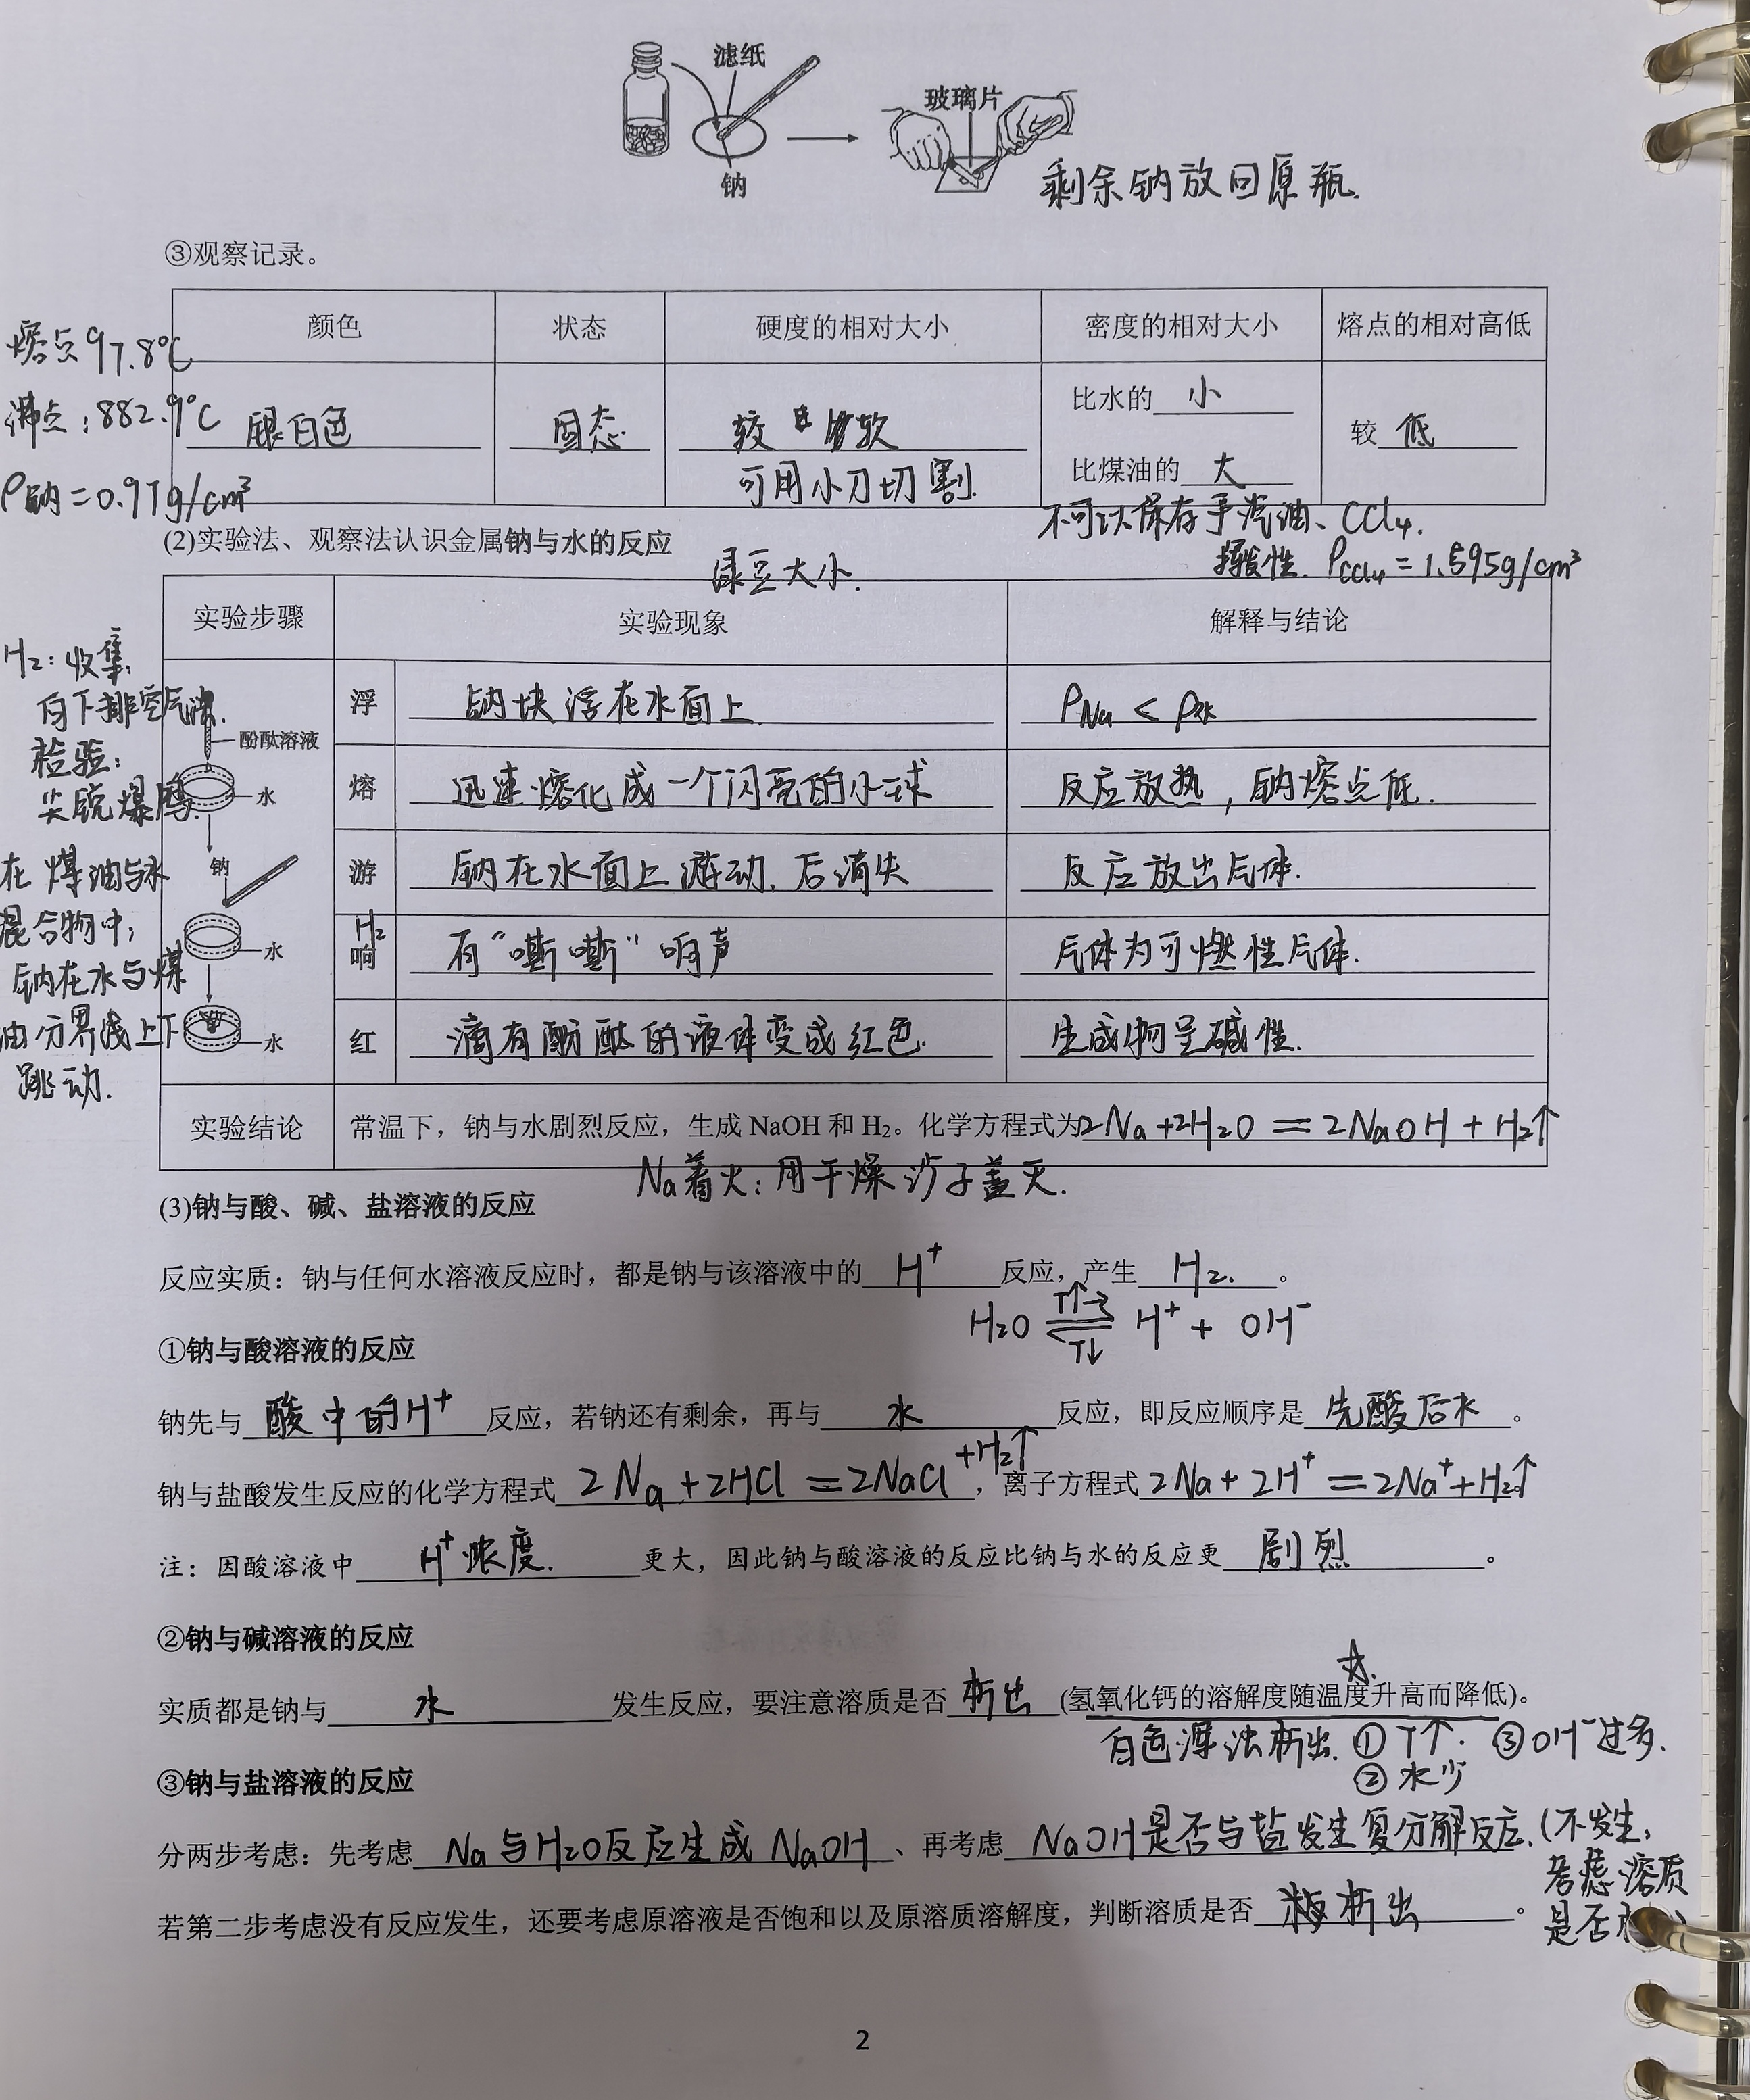 滤纸
玻璃片
钠
剩余钠放回原瓶.
③观察记录。
颜色 状态 硬度的相对大小 密度的相对大小 熔点的相对高低
熔点97.8℃
沸点:882.9℃
ρ钠=0.97g/cm³
银白色 固态 较 软
可用小刀切割.
比水的 小
比煤油的 大
较 低
不可以保存于汽油、CCl₄.
挥发性. ρCCl₄=1.595g/cm³
(2)实验法、观察法认识金属钠与水的反应
绿豆大小.
实验步骤 实验现象 解释与结论
H₂:收集:
向下排空气法.
检验:
尖锐爆鸣.
在煤油与水
混合物中;
钠在水与煤
油分界线上下
跳动.
酚酞溶液
水
钠
水
水
浮 钠块浮在水面上 ρNa<ρ水
熔 迅速熔化成一个闪亮的小球 反应放热,钠熔点低.
游 钠在水面上游动,后消失 反应放出气体.
H₂
响 有“嘶嘶”响声 气体为可燃性气体.
红 滴有酚酞的液体变成红色. 生成物呈碱性.
实验结论 常温下，钠与水剧烈反应，生成 NaOH 和 H₂。化学方程式为2Na+2H₂O=2NaOH+H₂↑
Na着火:用干燥沙子盖灭.
(3)钠与酸、碱、盐溶液的反应
反应实质：钠与任何水溶液反应时，都是钠与该溶液中的 H⁺ 反应，产生 H₂. 。
H₂O ⇌ H⁺ + OH⁻
T↑→
T↓
①钠与酸溶液的反应
钠先与 酸中的H⁺ 反应，若钠还有剩余，再与 水 反应，即反应顺序是 先酸后水 。
钠与盐酸发生反应的化学方程式 2Na+2HCl=2NaCl+H₂↑ ，离子方程式 2Na+2H⁺=2Na⁺+H₂↑
注：因酸溶液中 H⁺浓度. 更大，因此钠与酸溶液的反应比钠与水的反应更 剧烈 。
②钠与碱溶液的反应
实质都是钠与 水 发生反应，要注意溶质是否 析出 (氢氧化钙的溶解度随温度升高而降低)。
白色浑浊析出. ①T↑. ③OH⁻过多.
②水少
③钠与盐溶液的反应
分两步考虑：先考虑 Na与H₂O反应生成NaOH 、再考虑 NaOH是否与盐发生复分解反应.(不发生,
考虑溶质
是否
若第二步考虑没有反应发生，还要考虑原溶液是否饱和以及原溶质溶解度，判断溶质是否 析出 。
2